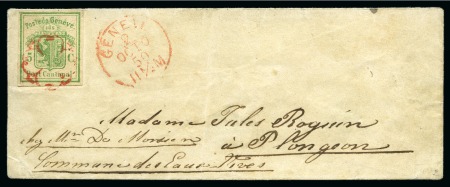 Poste de Genève
Port Cantonal
GENÈVE
Madame Jules Roguin
chez Mr. De Morsier
à Plongeon
Commune des Eaux Vives